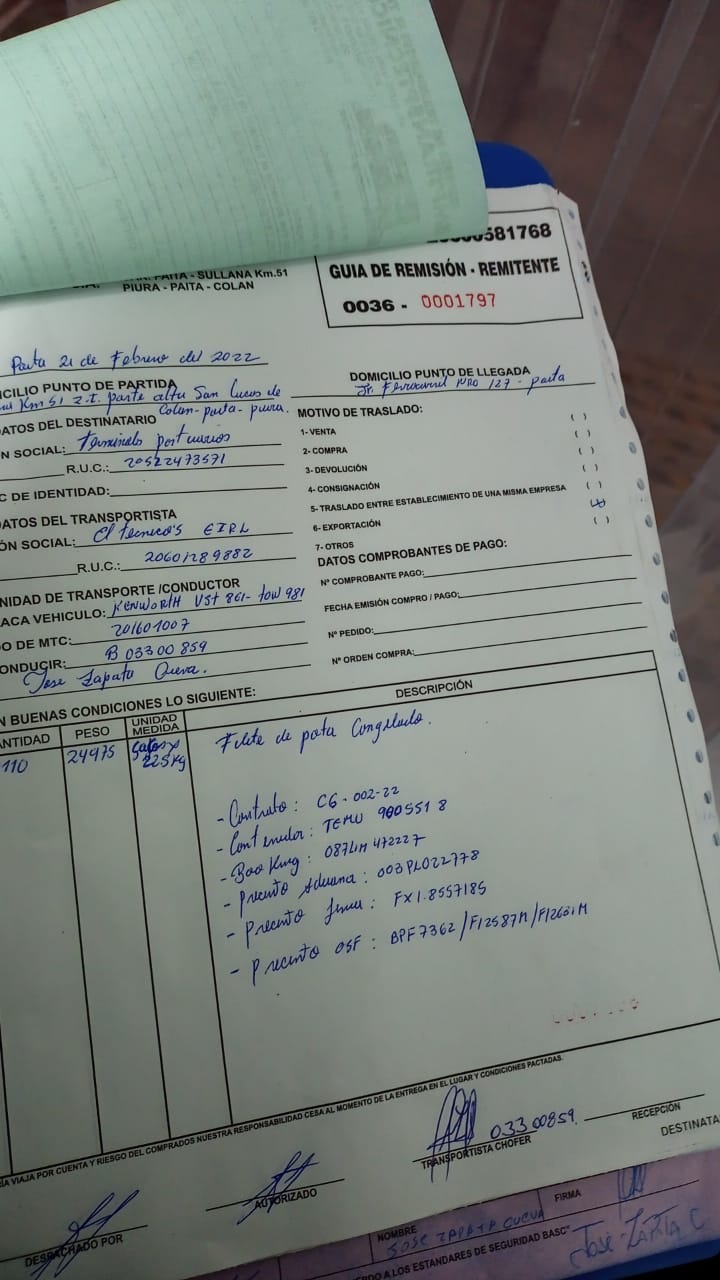 581768
GUIA DE REMISIÓN - REMITENTE
0036 - 0001797
PAITA - SULLANA Km.51
PIURA - PAITA - COLAN
Paita 21 de Febrero del 2022
CILIO PUNTO DE PARTIDA
Km 51 z.t. parte alta San Lucas de
Colan-paita-piura.
DOMICILIO PUNTO DE LLEGADA
Jr. Ferrocarril NRO 127 - paita
ATOS DEL DESTINATARIO
N SOCIAL: Terminales portuarios
R.U.C.: 20522473571
C DE IDENTIDAD:
MOTIVO DE TRASLADO:
1- VENTA ( )
2- COMPRA ( )
3- DEVOLUCIÓN ( )
4- CONSIGNACIÓN ( )
5- TRASLADO ENTRE ESTABLECIMIENTO DE UNA MISMA EMPRESA ( )
6- EXPORTACIÓN
7- OTROS ( )
ATOS DEL TRANSPORTISTA
ÓN SOCIAL: El tecnico's EIRL
R.U.C.: 20601289882
DATOS COMPROBANTES DE PAGO:
Nº COMPROBANTE PAGO:
FECHA EMISIÓN COMPRO / PAGO:
Nº PEDIDO:
Nº ORDEN COMPRA:
NIDAD DE TRANSPORTE /CONDUCTOR
ACA VEHICULO: KENWORTH 861- 981
O DE MTC: 201601007
ONDUCIR: B 03300859
Jose Zapata Cueva.
N BUENAS CONDICIONES LO SIGUIENTE:
ANTIDAD PESO UNIDAD MEDIDA DESCRIPCIÓN
110 24975 22.5kg Filete de pota Congelado.
- Contrato: CG-002-22
- Contenedor: TEMU 9005518
- Booking: 087LIM 472227
- Precinto Aduana: 003PL022778
- Precinto Linea: FX1.8557185
- Precinto OSF: BPF7362/F12587M/
ÍA VIAJA POR CUENTA Y RIESGO DEL COMPRADOS NUESTRA RESPONSABILIDAD CESA AL MOMENTO DE LA ENTREGA EN EL LUGAR Y CONDICIONES PACTADAS.
03300859
DESPACHADO POR
AUTORIZADO
TRANSPORTISTA CHOFER
RECEPCIÓN
DESTINATA
NOMBRE
JOSE ZAPATA CUEVA
FIRMA
RDO A LOS ESTANDARES DE SEGURIDAD BASC"